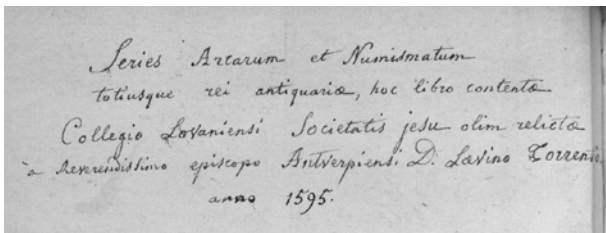 Series Arcarum et Numismatum
totiusque rei antiquariæ, hoc libro contentæ
Collegio Lovaniensi Societatis jesu olim relictæ
à Reverendissimo episcopo Antverpiensi D. Lævino Torrentio
anno 1595.